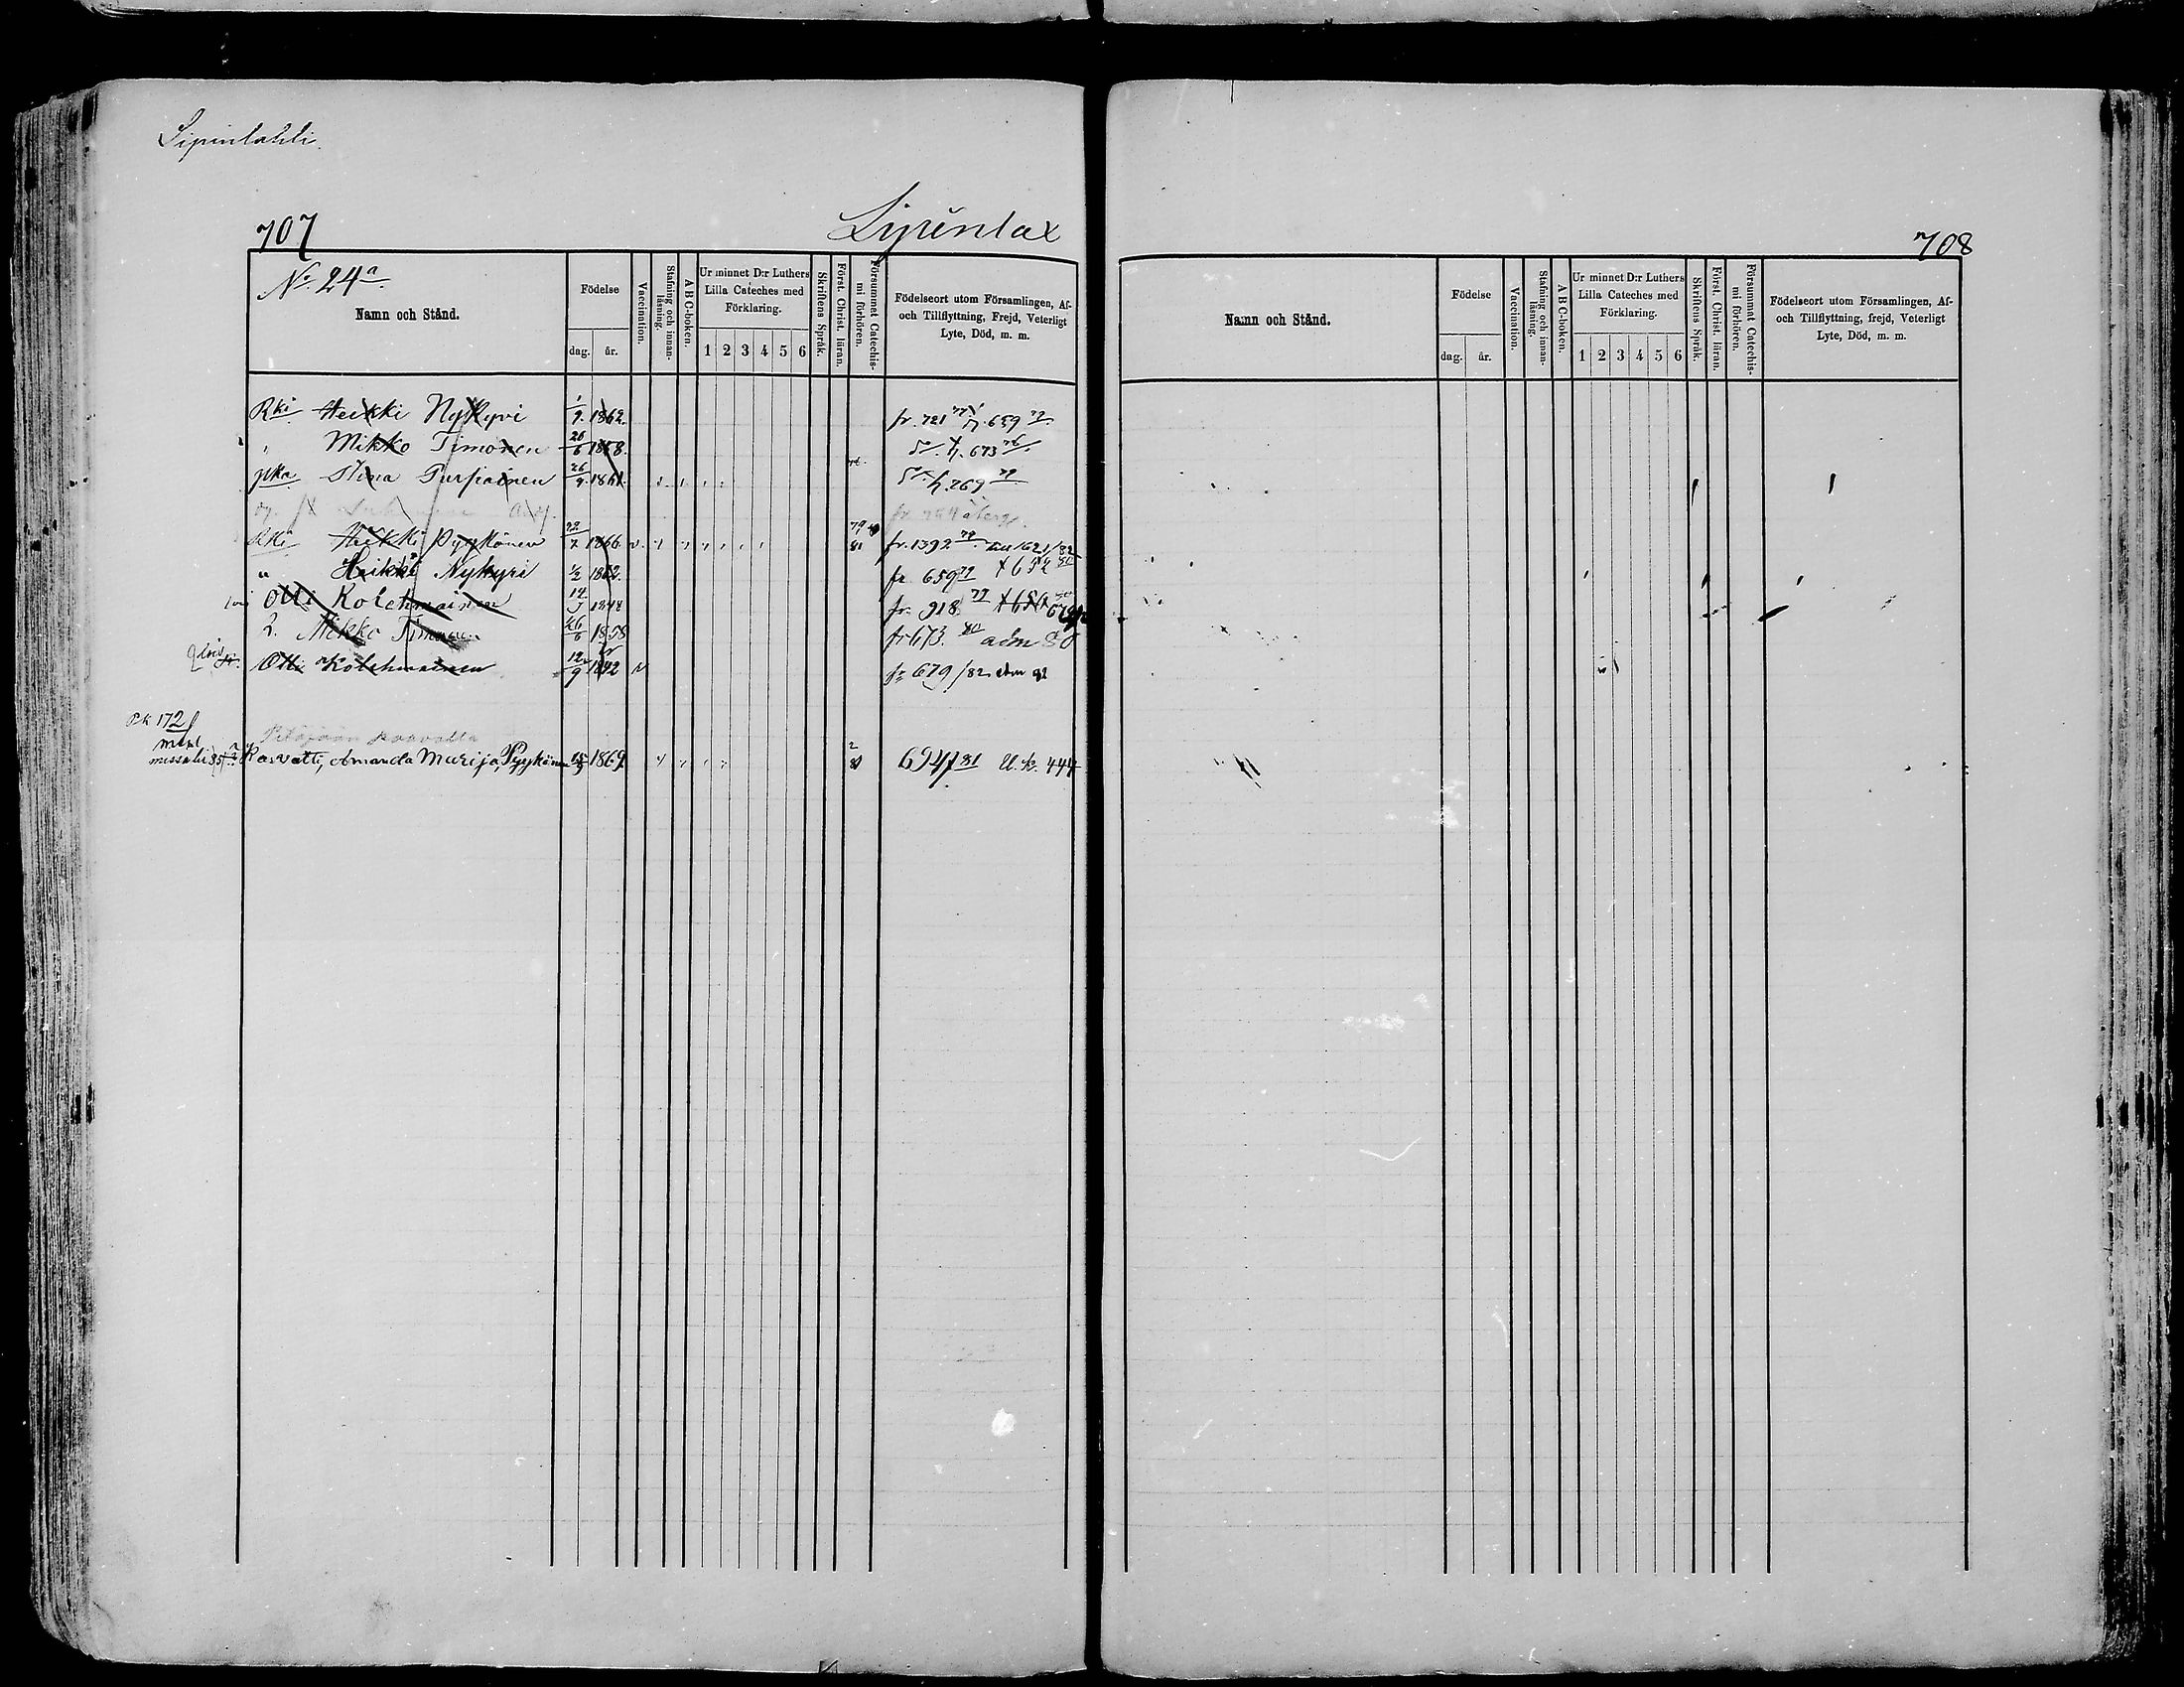 Sipinlahti.
707
Sipinlax
708
No 24a
Namn och Stånd.
Födelse
dag. år.
Vaccination.
Stafning och innan-läsning.
A B C-boken.
Ur minnet D:r Luthers Lilla Cateches med Förklaring.
1 2 3 4 5 6
Skriftens Språk.
Först. Christ. läran.
Försummat Catechis-mi förhören.
Födelseort utom Församlingen, Af- och Tillflyttning, Frejd, Veterligt Lyte, Död, m. m.
Rki Heikki Nykyri 1/9. 1862. fr. 721 659 79
" Mikko Timonen 26/6 1858. 673 76
pka Stina Purpiainen 26/9. 1861. 269 79
Rki Heikki Pyykönen 22/7 1866 v. 79 81 fr. 1392 79 1621/82
" Heikki Nykyri 1/2 1862. fr 659 79
Otti Kolehmainen 12/9 1848 fr. 918 79
2. Mikko Timonen 26/6 1858 fr 673. 80 adm 80
Otti Kolehmainen 12/9 1842 v fr 679/82
P.k 172
Kasvatti, Amanda Marija Pyykönen 1869. 694/81 U.k. 444
Namn och Stånd.
Födelse
dag. år.
Vaccination.
Stafning och innan-läsning.
A B C-boken.
Ur minnet D:r Luthers Lilla Cateches med Förklaring.
1 2 3 4 5 6
Skriftens Språk.
Först. Christ. läran.
Försummat Catechis-mi förhören.
Födelseort utom Församlingen, Af- och Tillflyttning, frejd, Veterligt Lyte, Död, m. m.